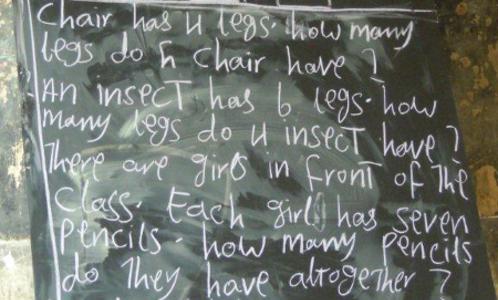 Chair has 4 legs. how many
legs do 5 chair have?
An insect has 6 legs. how
many legs do 4 insect have?
There are girls in front of the
class. Each girl has seven
pencils. how many pencils
do they have altogether?